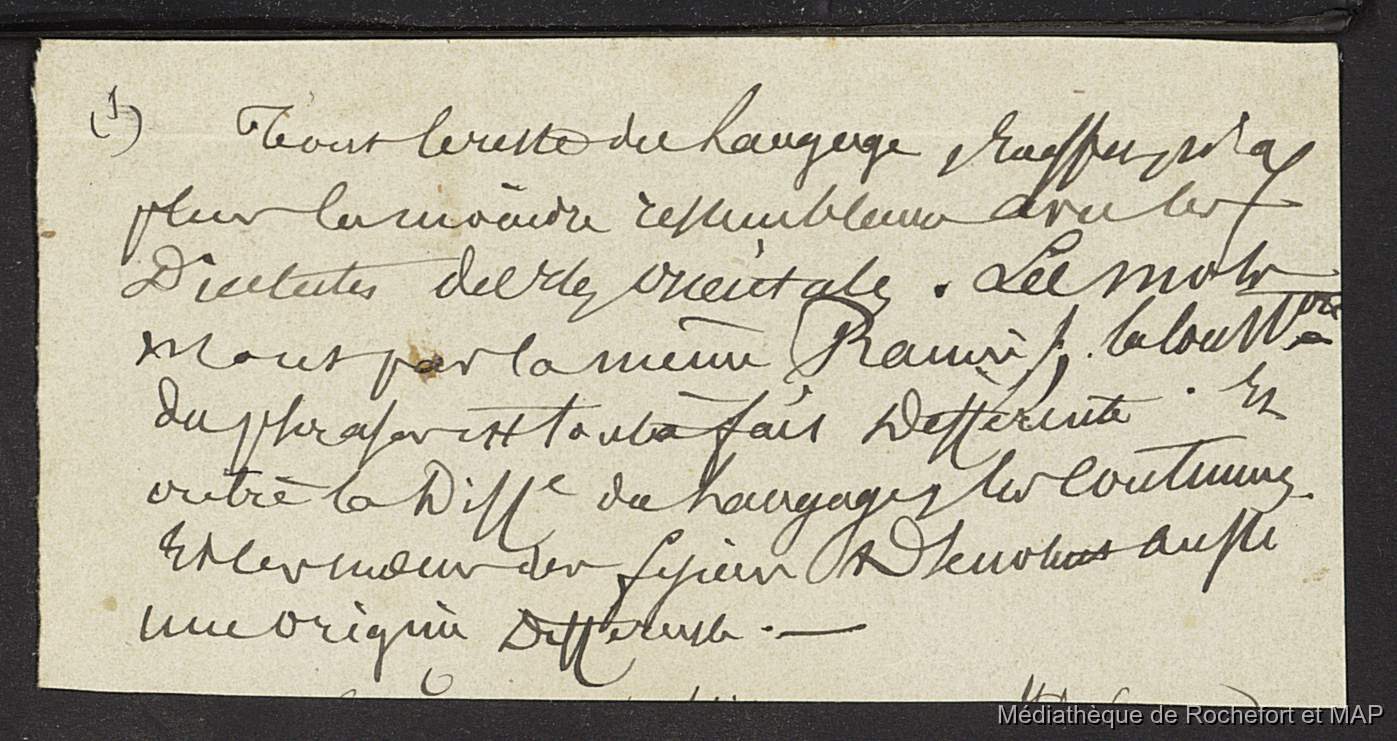 (1) Tout le reste du Langage n'a
plus la moindre ressemblance avec les
Dialectes de l'Ile orientale. Les mots
n'ont pas la même Racine, la
du phrases est tout à fait Differente. Et
outre la Diffce du Langage, les Coutumes
Et les mœurs des fijiens Dénotent aussi
une origine Differente. —
Médiathèque de Rochefort et MAP